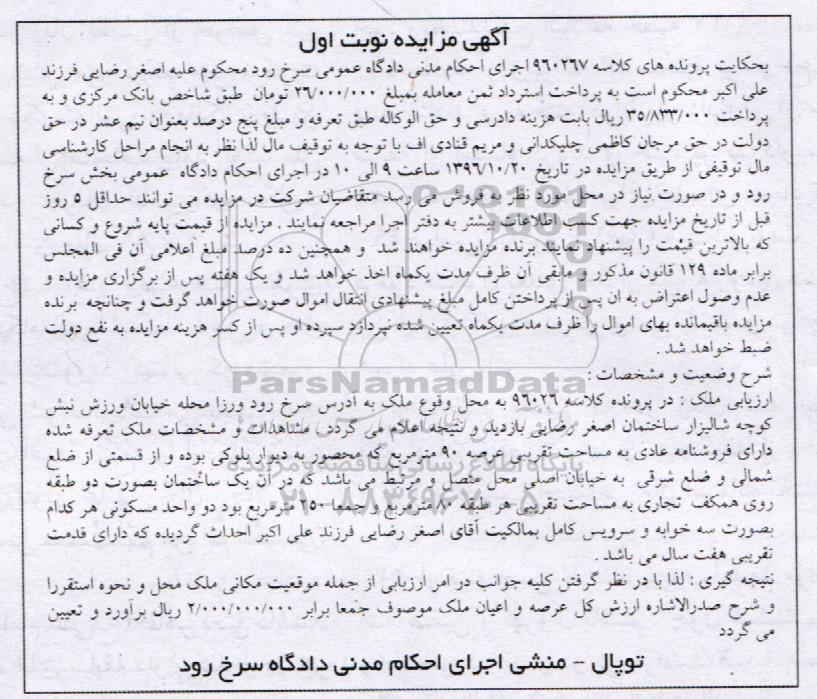 آگهی مزایده نوبت اول
بحکایت پرونده های کلاسه ۹۶۰۲۶۷ اجرای احکام مدنی دادگاه عمومی سرخ رود محکوم علیه اصغر رضایی فرزند
علی اکبر محکوم است به پرداخت استرداد ثمن معامله بمبلغ ۲۶/۰۰۰/۰۰۰ تومان طبق شاخص بانک مرکزی و به
پرداخت ۳۵/۸۳۳/۰۰۰ریال بابت هزینه دادرسی و حق الوکاله طبق تعرفه و مبلغ پنج درصد بعنوان نیم عشر در حق
دولت در حق مرجان کاظمی چلیکدانی و مریم قنادی اف با توجه به توقیف مال لذا نظر به انجام مراحل کارشناسی
مال توقیفی از طریق مزایده در تاریخ ۱۳۹۶/۱۰/۲۰ ساعت ۹ الی ۱۰ در اجرای احکام دادگاه عمومی بخش سرخ
رود و در صورت نیاز در محل مورد نظر به فروش می رسد متقاضیان شرکت در مزایده می توانند حداقل ۵ روز
قبل از تاریخ مزایده جهت کسب اطلاعات بیشتر به دفتر اجرا مراجعه نمایند . مزایده از قیمت پایه شروع و کسانی
که بالاترین قیمت را پیشنهاد نمایند برنده مزایده خواهند شد و همچنین ده درصد مبلغ اعلامی آن فی المجلس
برابر ماده ۱۲۹ قانون مذکور و مابقی آن ظرف مدت یکماه اخذ خواهد شد و یک هفته پس از برگزاری مزایده و
عدم وصول اعتراض به ان پس از پرداختن کامل مبلغ پیشنهادی انتقال اموال صورت خواهد گرفت و چنانچه برنده
مزایده باقیمانده بهای اموال را ظرف مدت یکماه تعیین شده نپردازد سپرده او پس از کسر هزینه مزایده به نفع دولت
ضبط خواهد شد .
شرح وضعیت و مشخصات :
ارزیابی ملک : در پرونده کلاسه ۹۶۰۲۶ به محل وقوع ملک به ادرس سرخ رود ورزا محله خیابان ورزش نبش
کوچه شالیزار ساختمان اصغر رضایی بازدید و نتیجه اعلام می گردد. مشاهدات و مشخصات ملک تعرفه شده
دارای فروشنامه عادی به مساحت تقریبی عرصه ۹۰ مترمربع که محصور به دیوار بلوکی بوده و از قسمتی از ضلع
شمالی و ضلع شرقی به خیابان اصلی محل متصل و مرتبط می باشد که در آن یک ساختمان بصورت دو طبقه
روی همکف تجاری به مساحت تقریبی هر طبقه ۸۰ مترمربع و جمعا ۲۵۰ مترمربع بود دو واحد مسکونی هر کدام
بصورت سه خوابه و سرویس کامل بمالکیت آقای اصغر رضایی فرزند علی اکبر احداث گردیده که دارای قدمت
تقریبی هفت سال می باشد .
نتیجه گیری : لذا با در نظر گرفتن کلیه جوانب در امر ارزیابی از جمله موقعیت مکانی ملک محل و نحوه استقررا
و شرح صدرالاشاره ارزش کل عرصه و اعیان ملک موصوف جمعا برابر ۲/۰۰۰/۰۰۰/۰۰۰ ریال برآورد و تعیین
می گردد
توپال - منشی اجرای احکام مدنی دادگاه سرخ رود
ParsNamadData
پایگاه اطلاع رسانی مناقصه و مزایده